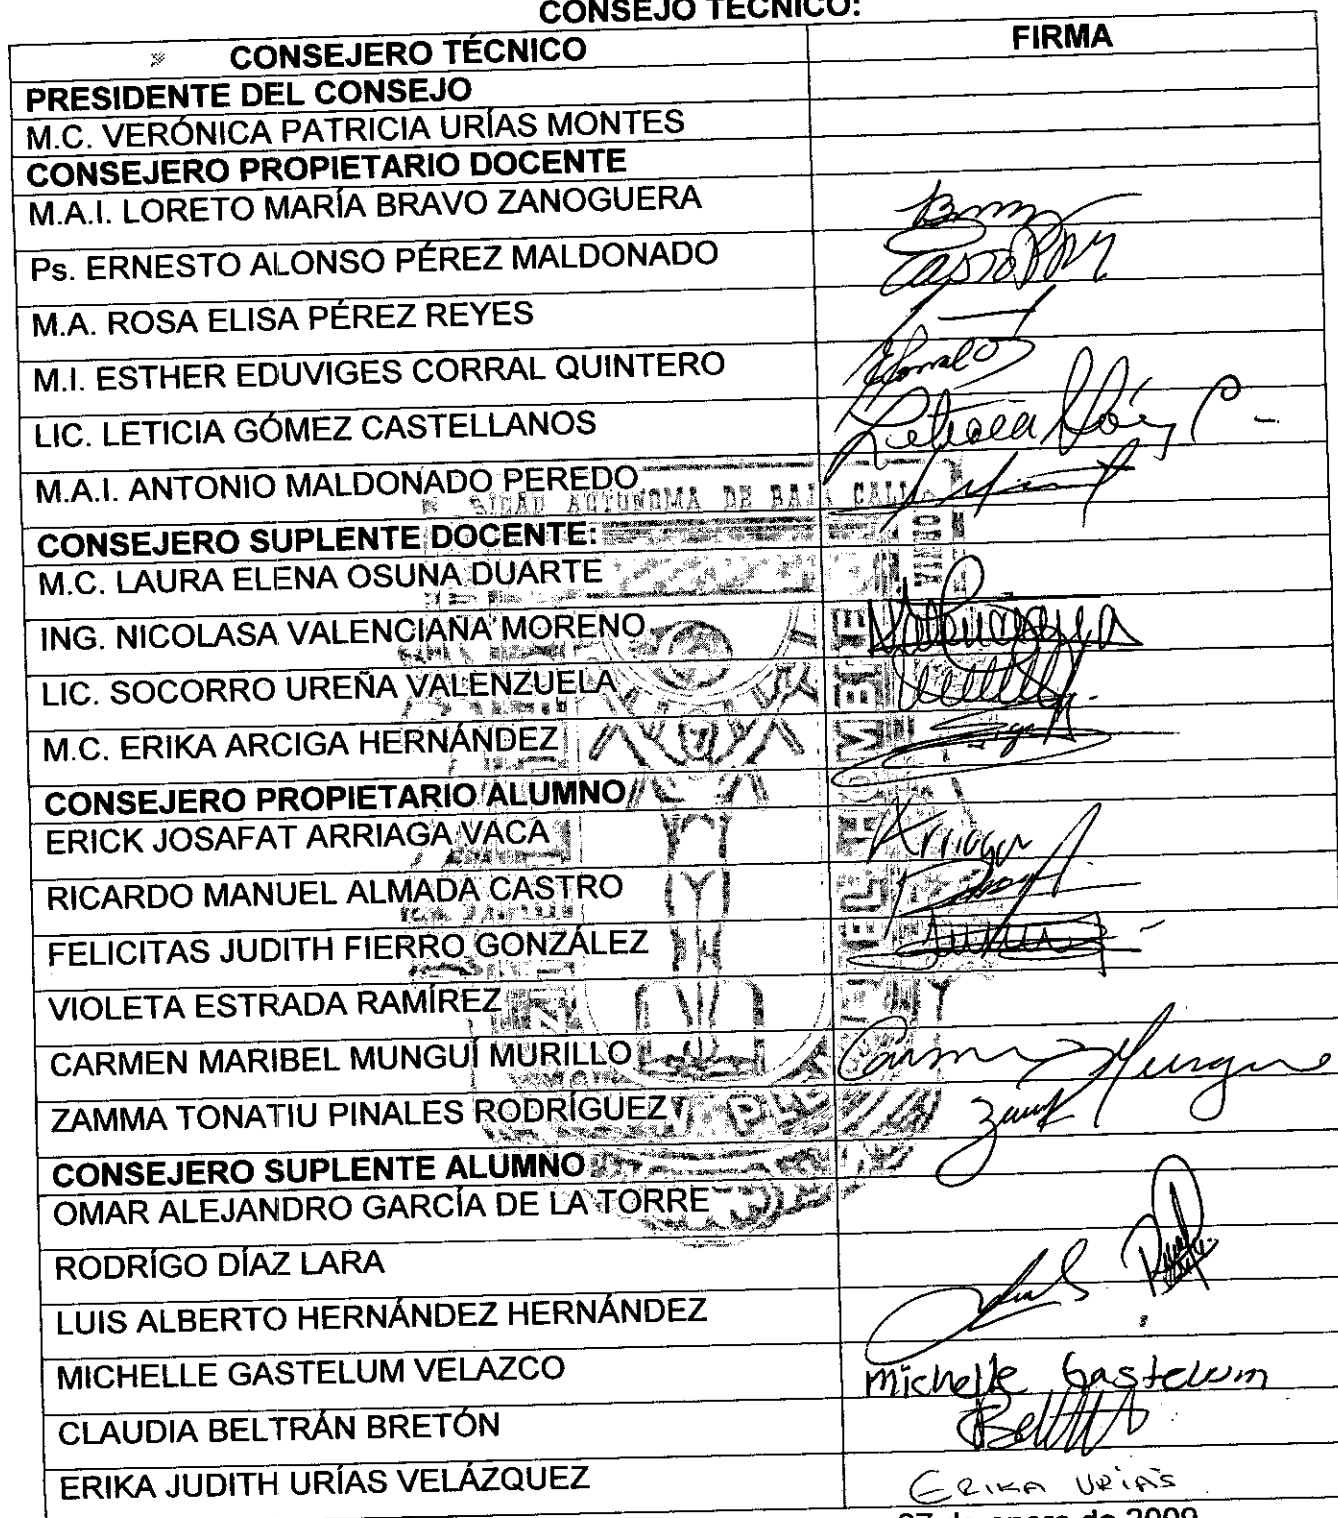 CONSEJO TÉCNICO:
CONSEJERO TÉCNICO FIRMA
PRESIDENTE DEL CONSEJO
M.C. VERÓNICA PATRICIA URÍAS MONTES
CONSEJERO PROPIETARIO DOCENTE
M.A.I. LORETO MARÍA BRAVO ZANOGUERA
Ps. ERNESTO ALONSO PÉREZ MALDONADO
M.A. ROSA ELISA PÉREZ REYES
M.I. ESTHER EDUVIGES CORRAL QUINTERO
LIC. LETICIA GÓMEZ CASTELLANOS
M.A.I. ANTONIO MALDONADO PEREDO
AUTONOMA DE BAJA CALI
CONSEJERO SUPLENTE DOCENTE:
M.C. LAURA ELENA OSUNA DUARTE
ING. NICOLASA VALENCIANA MORENO
LIC. SOCORRO UREÑA VALENZUELA
M.C. ERIKA ARCIGA HERNÁNDEZ
CONSEJERO PROPIETARIO ALUMNO
ERICK JOSAFAT ARRIAGA VACA
RICARDO MANUEL ALMADA CASTRO
FELICITAS JUDITH FIERRO GONZÁLEZ
VIOLETA ESTRADA RAMÍREZ
CARMEN MARIBEL MUNGUÍ MURILLO
ZAMMA TONATIU PINALES RODRÍGUEZ
CONSEJERO SUPLENTE ALUMNO
OMAR ALEJANDRO GARCÍA DE LA TORRE
RODRÍGO DÍAZ LARA
LUIS ALBERTO HERNÁNDEZ HERNÁNDEZ
MICHELLE GASTELUM VELAZCO Michelle Gastelum
CLAUDIA BELTRÁN BRETÓN
ERIKA JUDITH URÍAS VELÁZQUEZ ERIKA URIAS
27 de enero de 2009